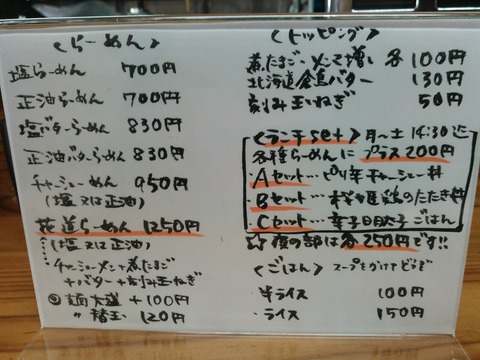 〈らーめん〉
塩らーめん 700円
正油らーめん 700円
塩バターらーめん 830円
正油バターらーめん 830円
チャーシューめん 950円
(塩又は正油)
花道らーめん 1250円
(塩又は正油)
チャーシューメン+煮たまご
+バター+刻み玉ねぎ
麺大盛 +100円
〃 替玉 120円
〈トッピング〉
煮たまご・メンマ増し 各100円
北海道 バター 130円
刻み玉ねぎ 50円
〈ランチset〉月〜土 14:30迄
各種らーめんに プラス200円
・Aセット…ピリ辛チャーシュー丼
・Bセット… 鶏のたたき丼
・Cセット…辛子明太子ごはん
☆夜の部は各250円です!!
〈ごはん〉スープをかけてどうぞ
・半ライス 100円
・ライス 150円